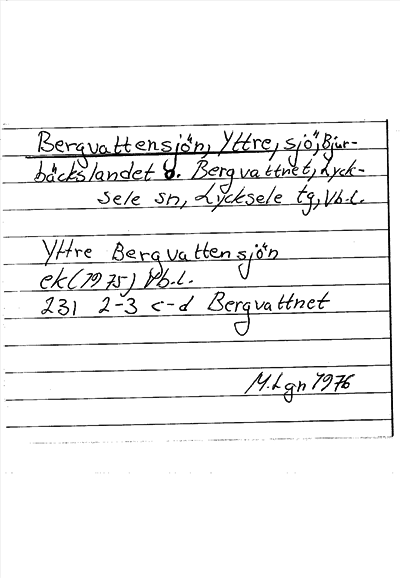 Bergvattensjön, Yttre, sjö, Bjur-
bäckslandet o. Bergvattnet, Lyck-
sele sn, Lycksele tg, Vb.l.
Yttre Bergvattensjön
ek (1975) Vb.l.
231 2-3 c-d Bergvattnet
M.Lgn 1976